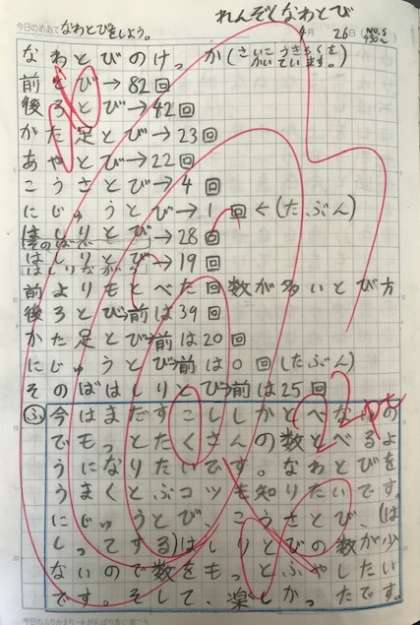 今日のめあて なわとびをしよう。
れんぞくなわとび
4月 26日 (No.5
なわとびのけっか(さいこうきろくをかいています。)
前とび→82回
後ろとび→42回
かた足とび→23回
あやとび→22回
こうさとび→4回
にじゅうとび→1回←(たぶん)
はしりとび→28回
そのばで
はしりとび→19回
はしりながら
前よりもとべた回数が多いとび方
後ろとび→前は39回
かた足とび→前は20回
にじゅうとび→前は0回(たぶん)
そのばはしりとび→前は25回
今はまだすこししかとべないの
でもっとたくさんの数とべるよ
うになりたいです。なわとびを
うまくとぶコツも知りたいです。
にじゅうとび、こうさとび、(は
しってする)はしりとびの数が少
ないので数をもっとふやしたい
です。そして、楽しかったです。